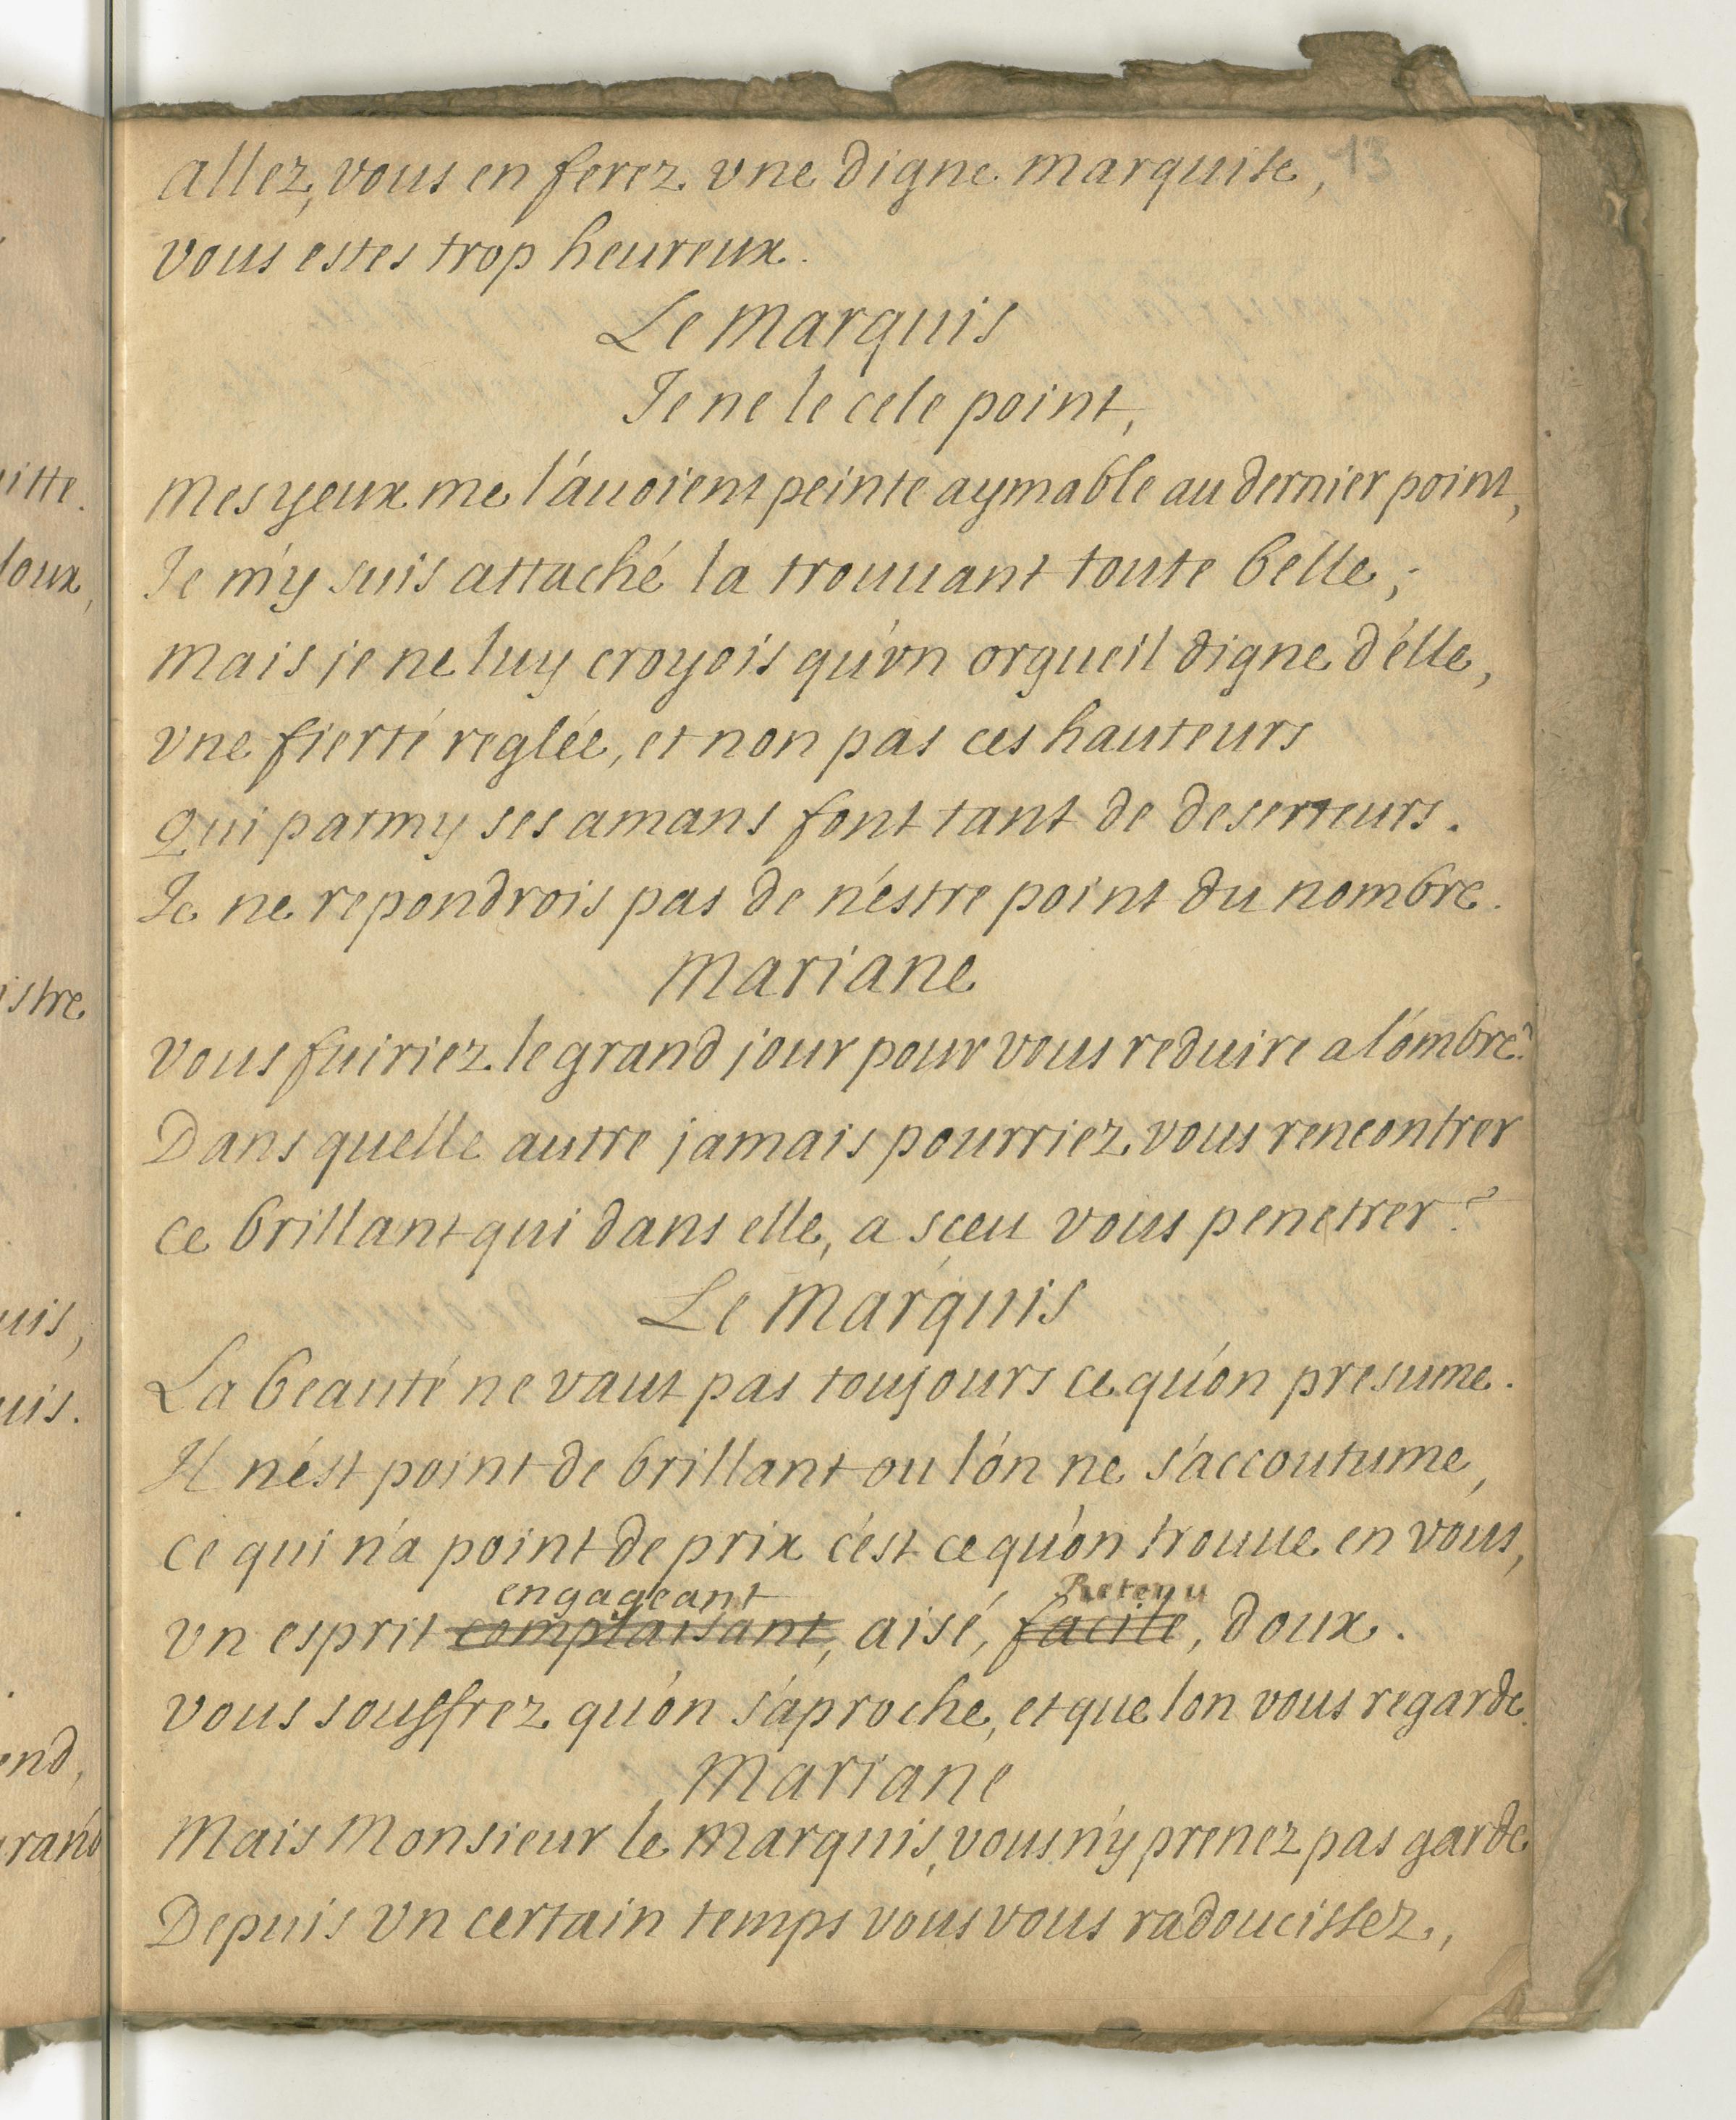 allez, vous en ferez vne digne marquise, 13
vous estes trop heureux.
Le Marquis
Je ne le cele point,
Mes yeux me l'auoient peinte aymable au dernier point,
Je m'y suis attaché la trouuant toute belle;
Mais je ne luy croyois qu'vn orgueil digne d'elle,
vne fierté reglée, et non pas ces hauteurs
Qui parmy ses amans font tant de deserteurs.
Je ne repondrois pas de n'estre point du nombre.
Mariane
vous fuiriez le grand jour pour vous reduire a l'ombre?
Dans quelle autre jamais pourriez vous rencontrer
ce brillant qui dans elle, a sceu vous penetrer?
Le Marquis
La beauté ne vaut pas toujours ce qu'on presume.
Il n'est point de brillant ou l'on ne s'accoutume,
ce qui n'a point de prix c'est ce qu'on trouue en vous,
engageant Retenu
vn esprit complaisant, aisé, facile, doux.
vous souffrez qu'on s'aproche, et que lon vous regarde.
Mariane
Mais Monsieur le Marquis, vous n'y prenez pas garde
Depuis vn certain temps vous vous radoucissez,
itte.
doux,
istre
uis,
uis.
end,
grand